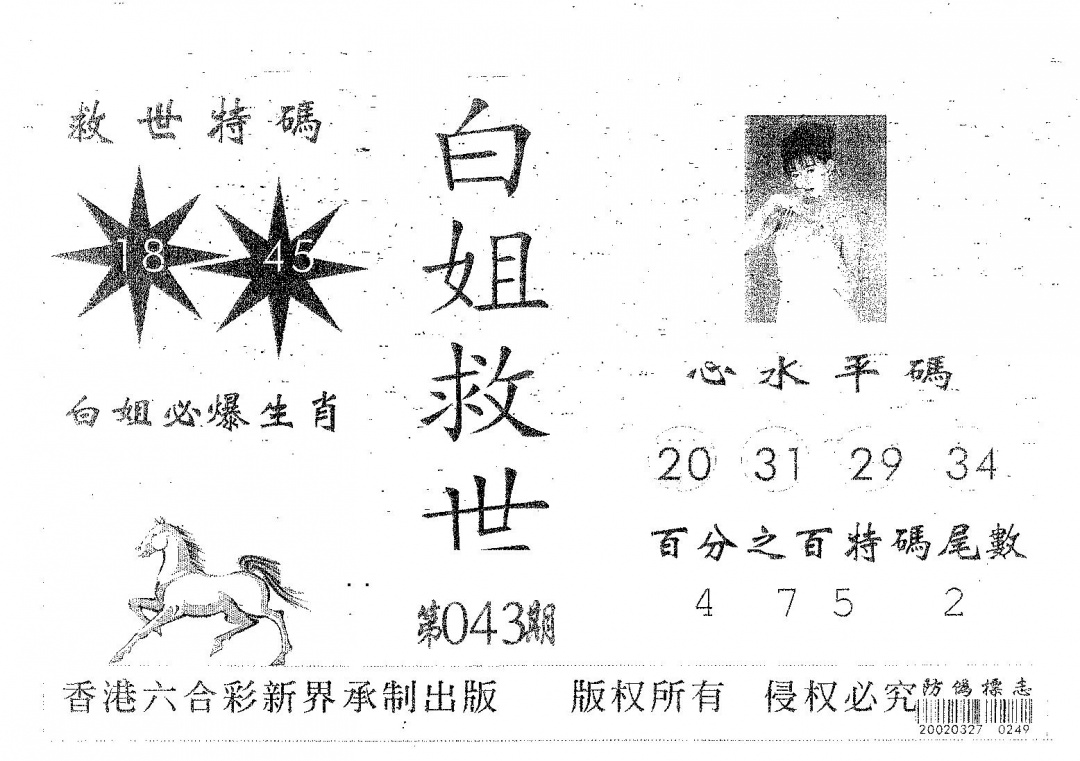 救世特碼
18 45
白姐必爆生肖
白姐救世
第043期
心水平碼
20 31 29 34
百分之百特碼尾數
4 7 5 2
香港六合彩新界承制出版 版权所有 侵权必究
防偽標志
20020327 0249